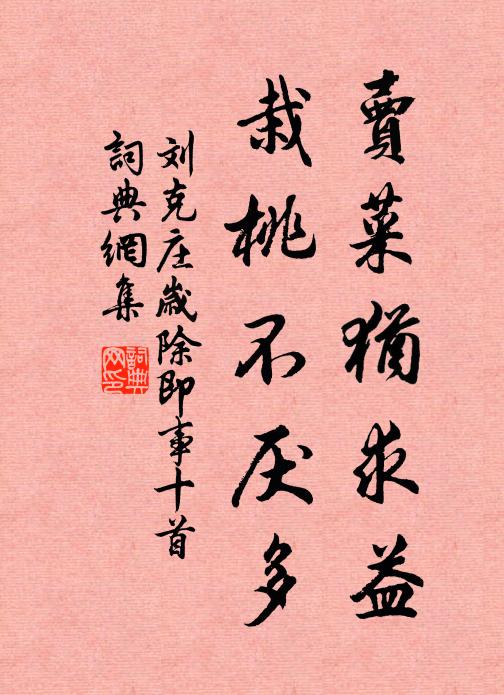 賣菜猶求益
栽桃不厌多
刘克庄歲除即事十首
詞典網集
詞典網印